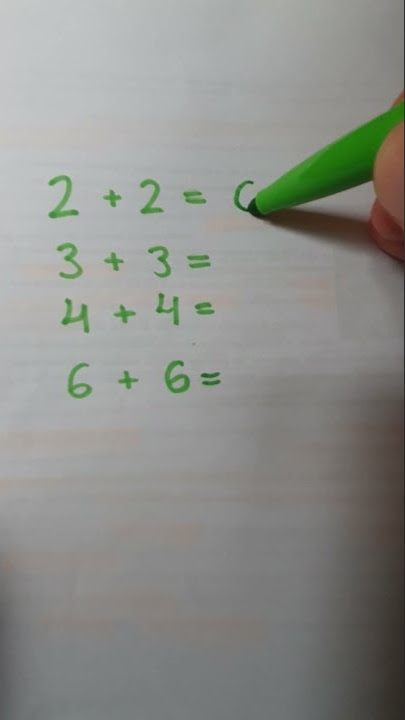 2 + 2 =
3 + 3 =
4 + 4 =
6 + 6 =